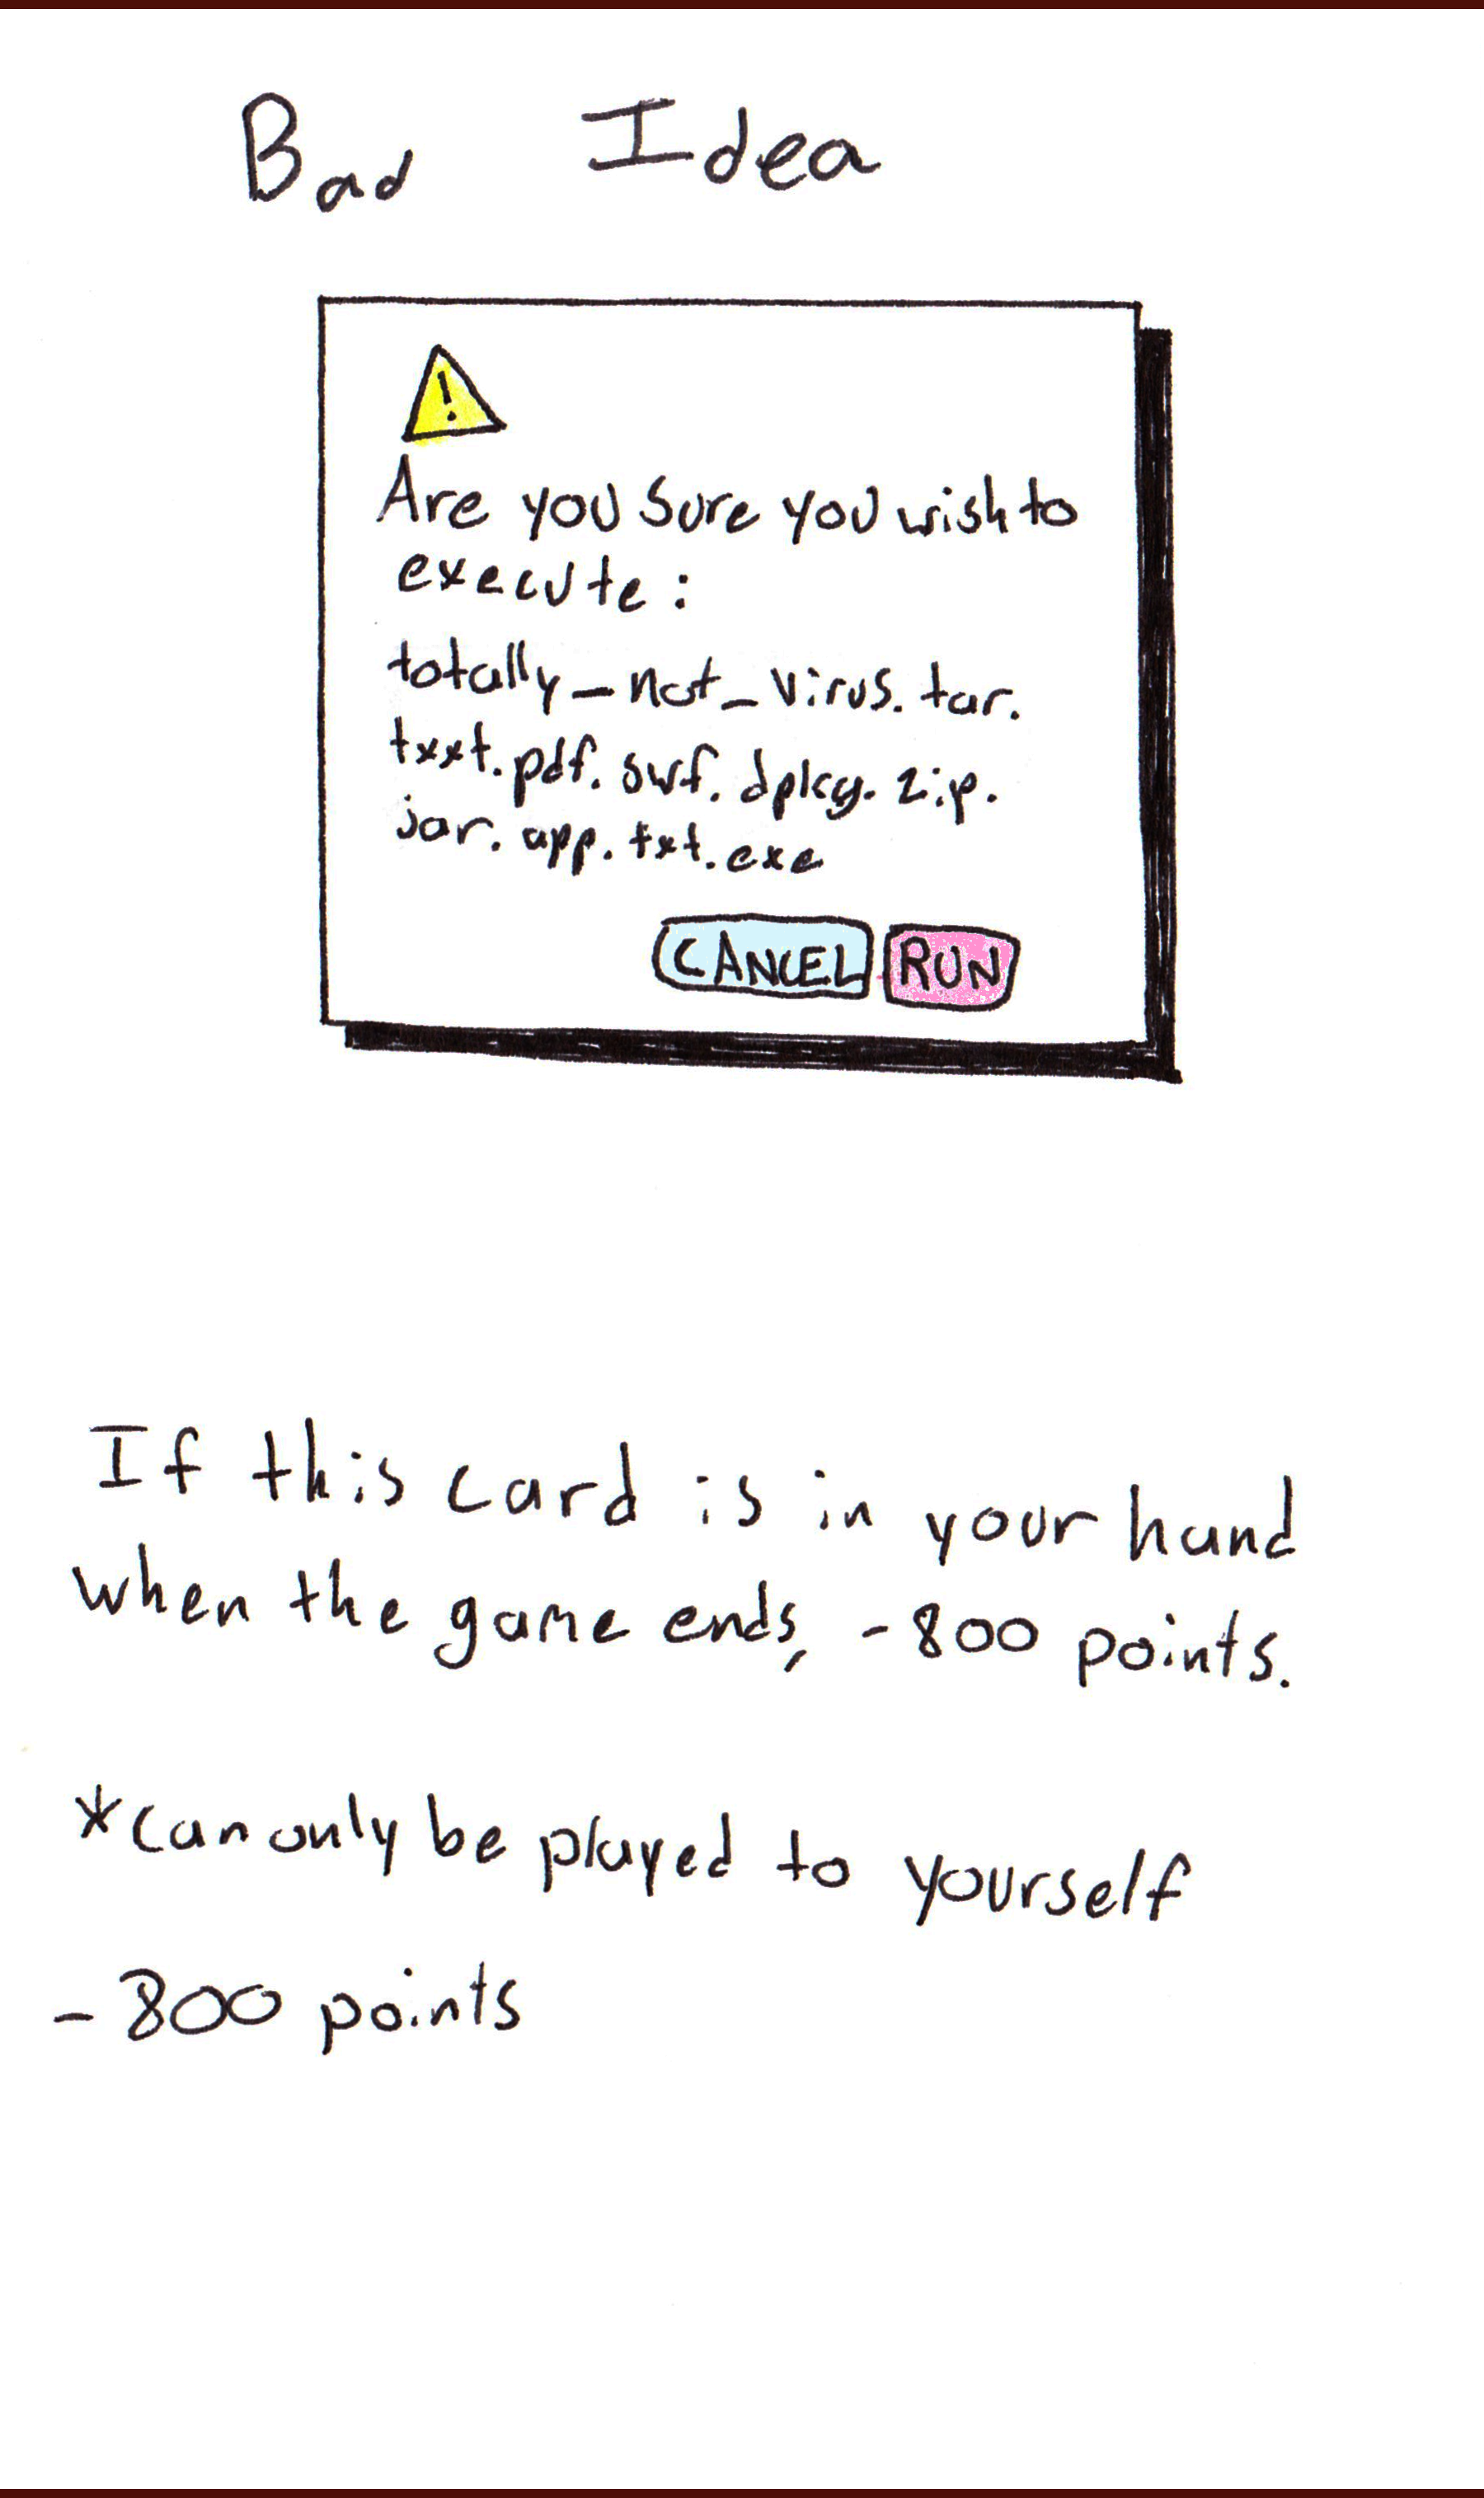 Bad Idea
!
Are you sure you wish to
execute:
totally_not_virus.tar.
txxt.pdf.swf.dpkg.zip.
jar.app.txt.exe
CANCEL RUN
If this card is in your hand
when the game ends, -800 points.
*Can only be played to yourself
-800 points